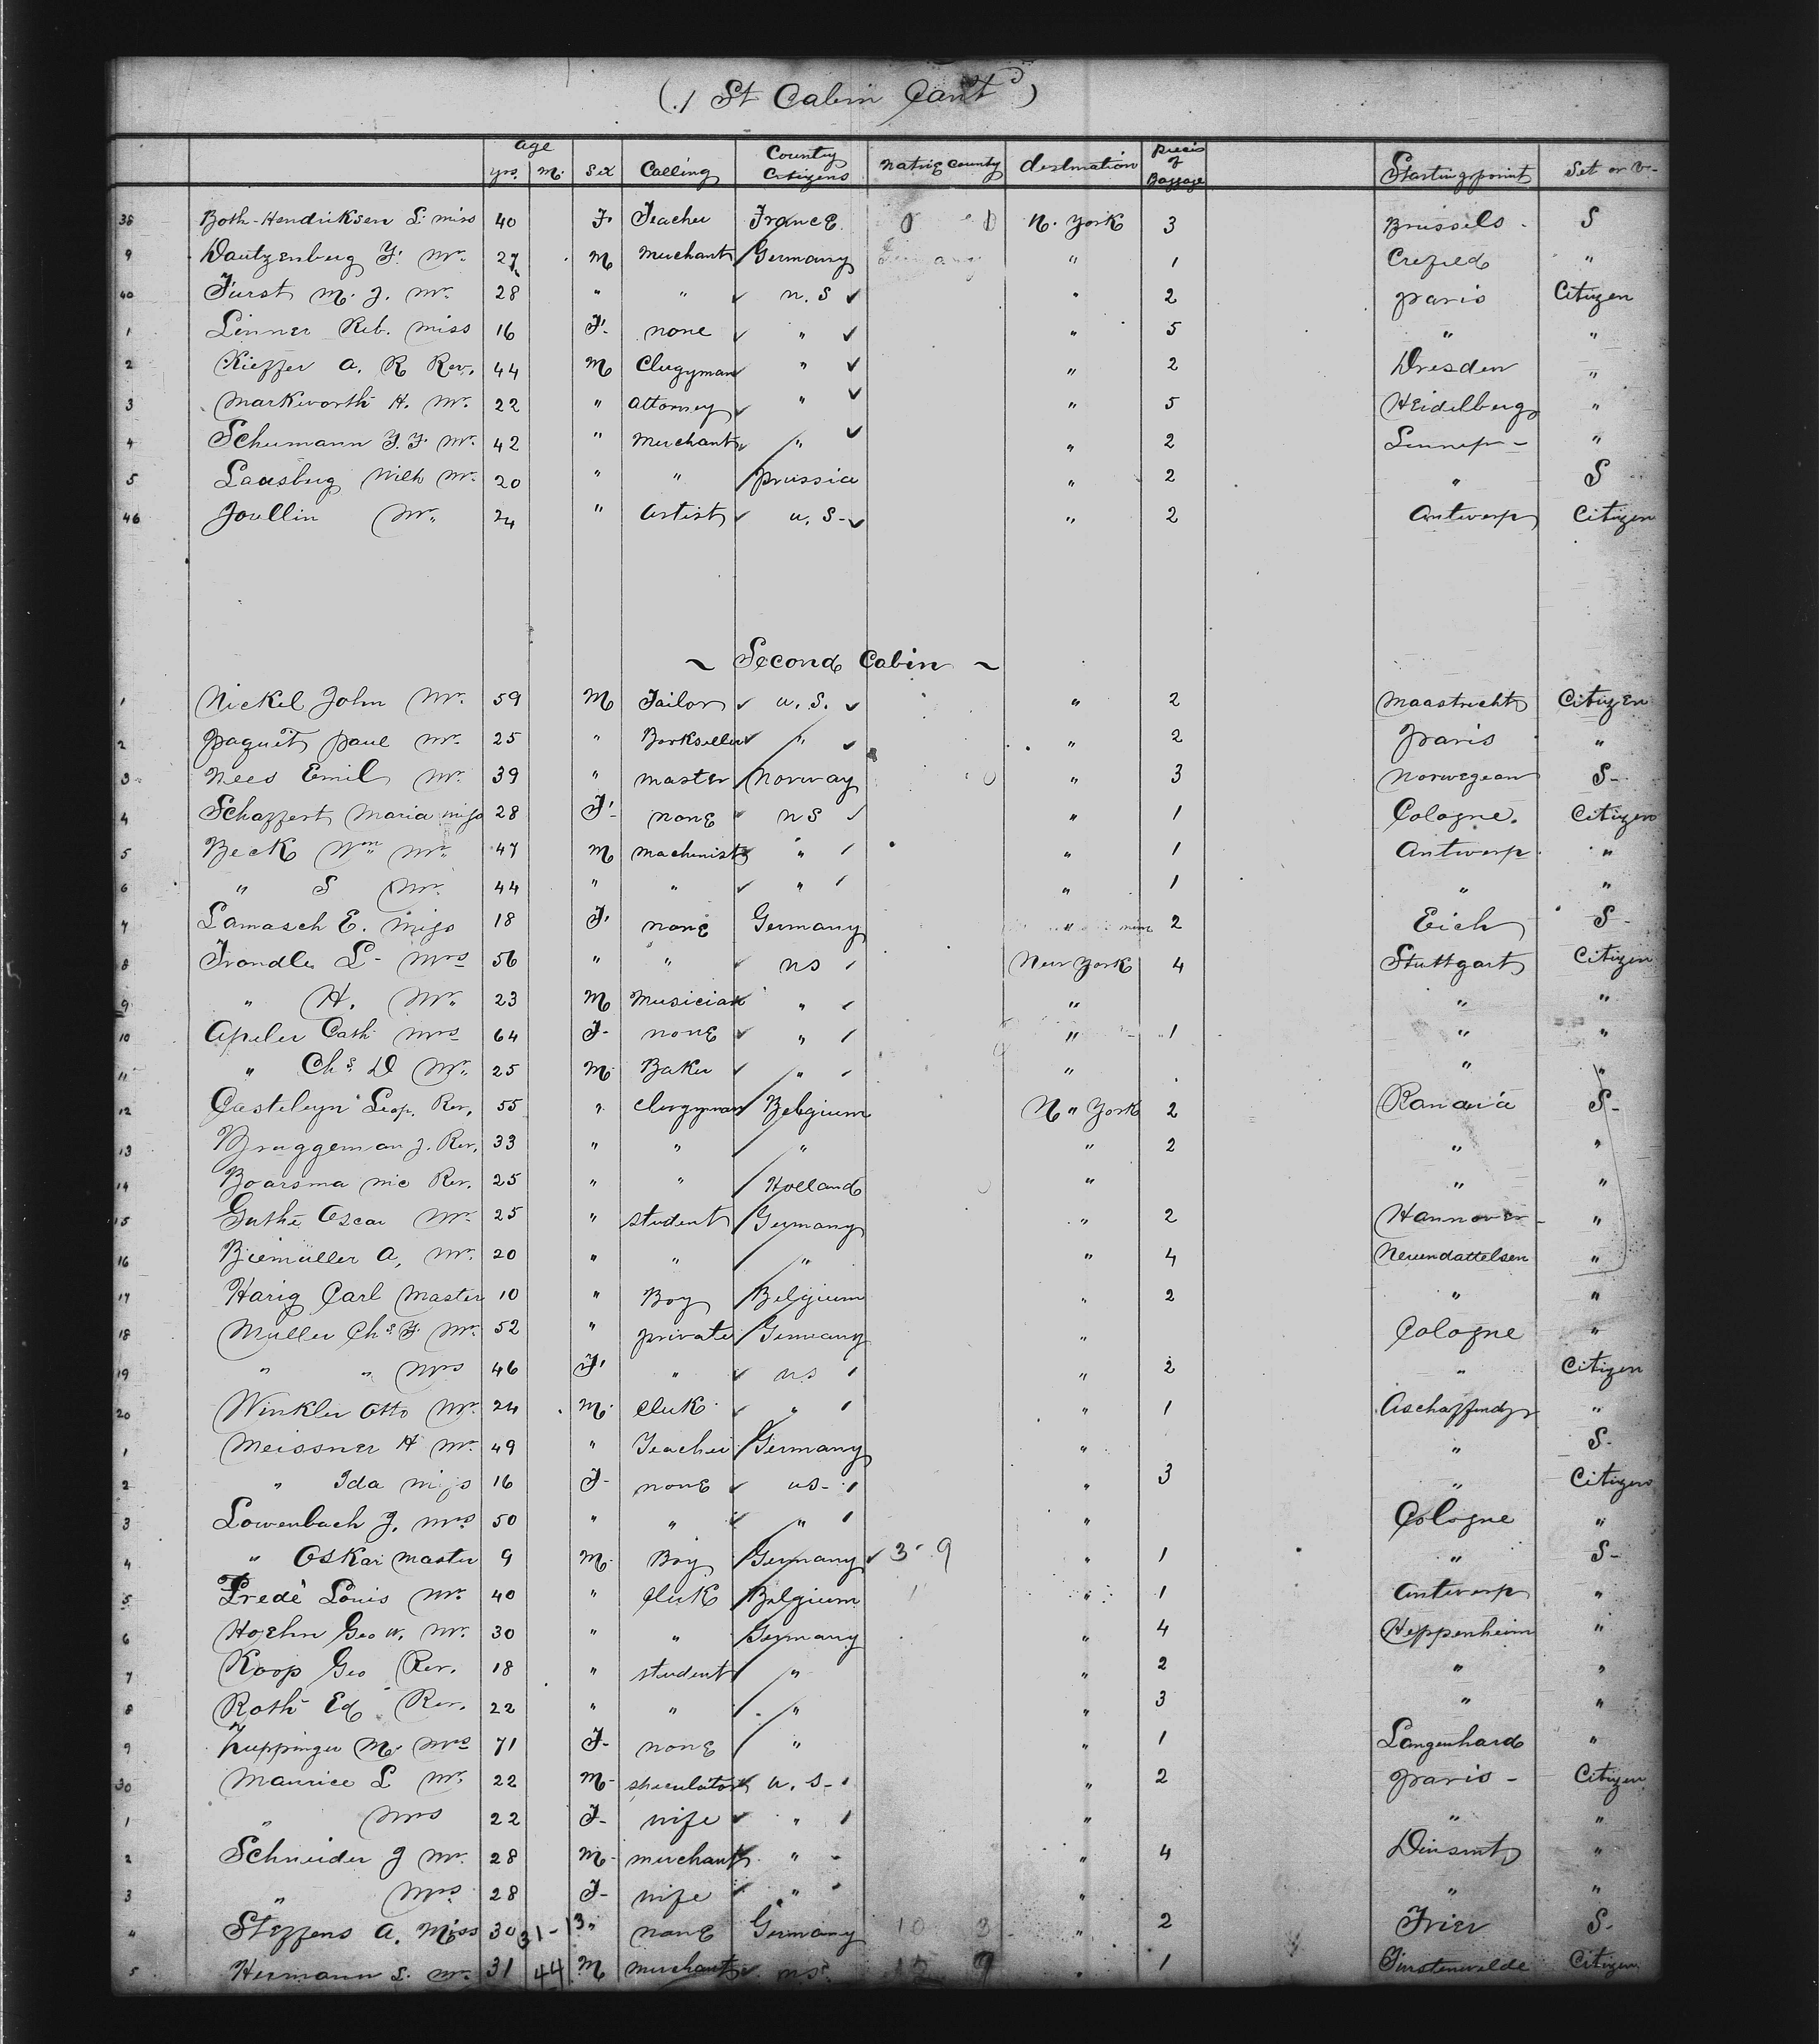 (1 St Cabin Cont'd)
age Country pieces of
yrs. m. Sex Calling Citizens Native County destination Baggage Startingpoint Set or V-
38 Both-Hendriksen S. miss 40 F. Teacher France. N. York 3 Brussels - S
9 Dautzenberg F. Mr. 27 M Merchant Germany " 1 Crefeld "
40 Furst M. J. Mr. 28 " " U. S " 2 paris Citizen
1 Linner Reb. miss 16 F. none " " 5 " "
2 Kieffer A. R Rev. 44 M Clergyman " " 2 Dresden "
3 Markworth H. Mr. 22 " attorney " " 5 Heidelberg "
4 Schumann F. F. Mr. 42 " Merchant " " 2 Lennep - "
5 Laasberg Wilh Mr. 20 " " Prussia " 2 " S
46 Joullin Mr. 24 " Artist U. S- " 2 Antwerp Citizen
~ Second Cabin ~
1 Nickel John Mr. 59 M Tailor U. S. " 2 Maastricht Citizen
2 Paquet Paul Mr. 25 " Bookseller " " 2 Paris "
3 Nees Emil Mr. 39 " master Norway " 3 Norwegean S-
4 Schaffert Maria miss 28 F. none US " 1 Cologne. Citizen
5 Beck Wm Mr. 47 M machinist " " 1 Antwerp "
6 " S Mr. 44 " " " " 1 " "
7 Lamasch E. miss 18 F. none Germany " 2 Eich S-
8 Trondle L- Mrs 56 " " US New York 4 Stuttgart Citizen
9 " H. Mr. 23 M Musician " " " "
10 Apeler Cath Mrs 64 F- none " " 1 " "
11 " Chs. D Mr. 25 M Baker " " " "
12 Casteleyn Leop. Rev. 55 " clergyman Belgium N " York 2 S-
13 Bruggeman J. Rev. 33 " " " " 2 " "
14 Boarsma nic Rev. 25 " " Holland " " "
15 Guthe Oscar Mr. 25 " student Germany " 2 Hannover - "
16 Biemuller A, Mr. 20 " " " " 4 Neuendattelsen "
17 Harig Carl Master 10 " Boy Belgium " 2 " "
18 Muller Chs F. Mr. 52 " private Germany " Cologne "
19 " " Mrs 46 F. " US " 2 " Citizen
20 Winkler Otto Mr. 24 M. Clerk " " 1 "
1 Meissner H Mr. 49 " Teacher Germany " " S-
2 " Ida miss 16 F- none US- " 3 " Citizen
3 Lowenbach J. Mrs 50 " " " " Cologne "
4 " Oskar master 9 M. Boy Germany 3 - 9 " 1 " S-
5 Fredé Louis Mr. 40 " Clerk Belgium " 1 Antwerp "
6 Hoehn Geo W. Mr. 30 " " Germany " 4 Heppenheim "
7 Koop Geo Rev. 18 " student " " 2 " "
8 Roth Ed Rev. 22 " " " " 3 " "
9 Zuppinger M. Mrs 71 F- none " " 1 Langenhard "
30 Maurice L Mr. 22 M- speculator U. S- " 2 paris - Citizen
1 " Mrs 22 F- wife " " " "
2 Schneider J Mr. 28 M- merchant " " 4 "
3 " Mrs 28 F- wife " " " "
4 Steffens A. Miss 30 31-13 " none Germany 10 3 " 2 Trier S-
5 Hermann S. Mr. 31 44 M Merchant US 12 9 " 1 Furstenwalde Citizen